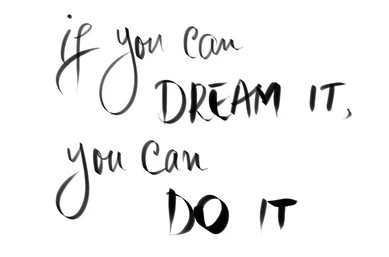 if you can
DREAM IT,
you can
DO IT